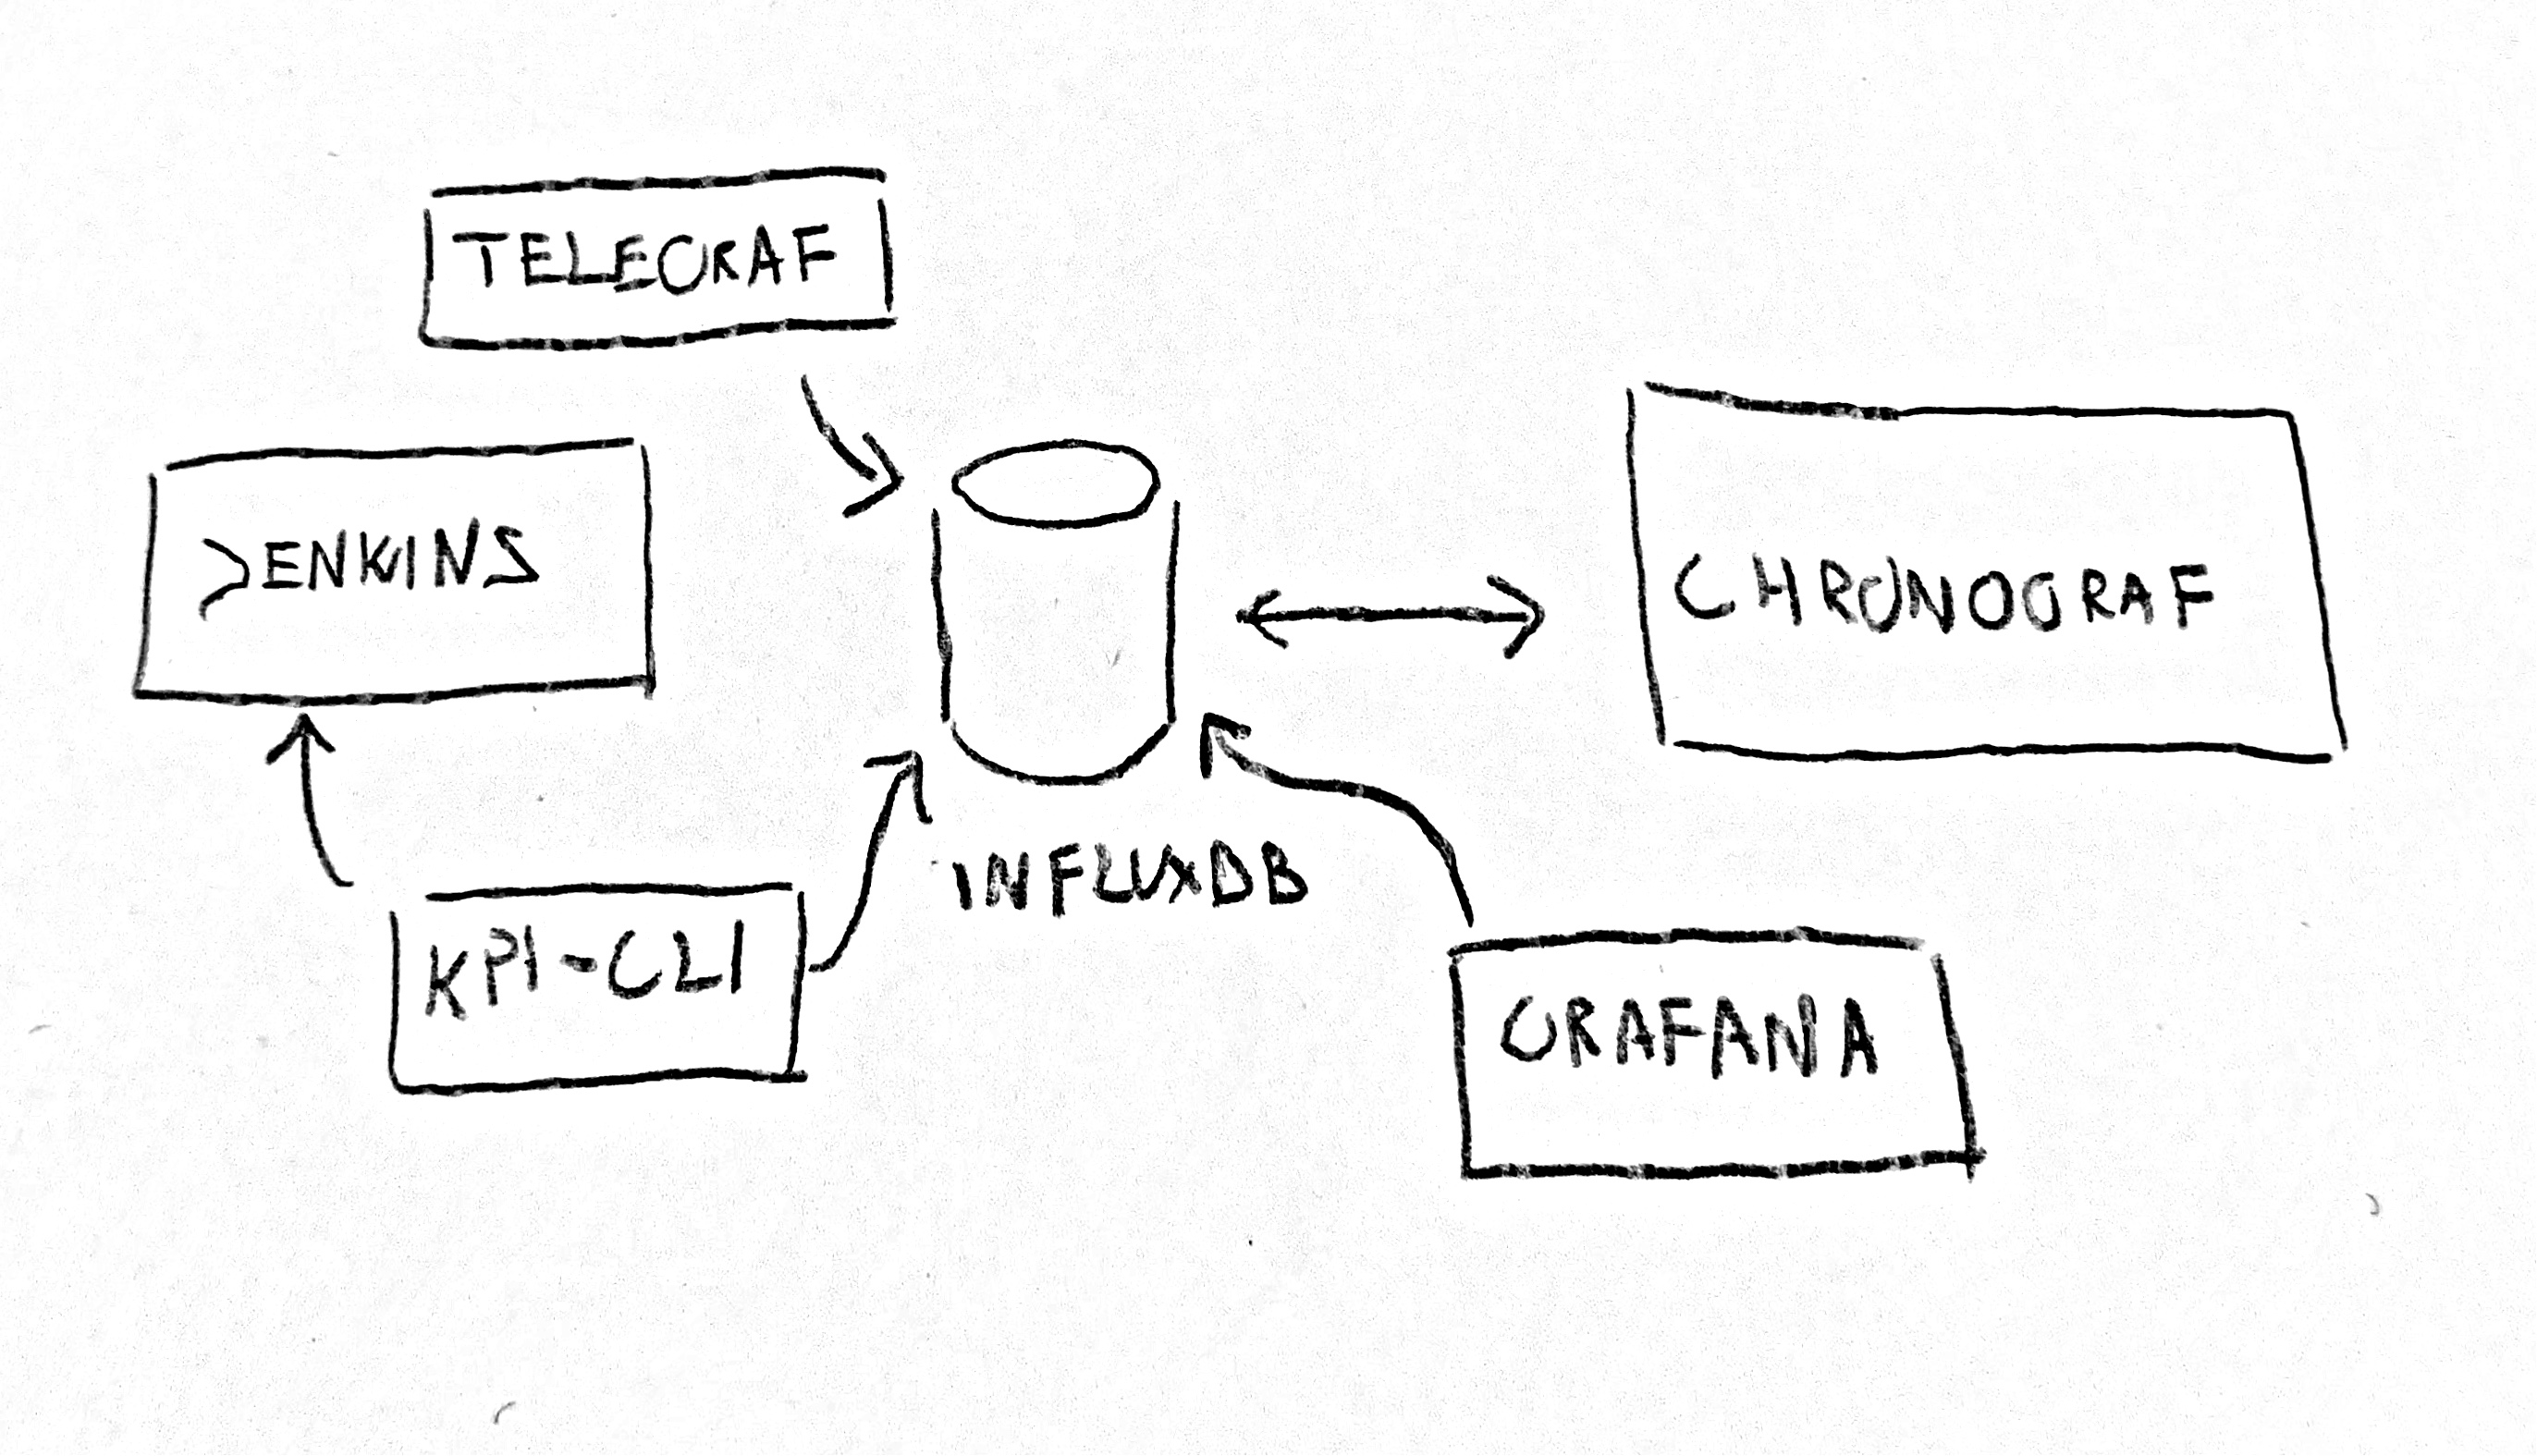 TELEGRAF
JENKINS
CHRONOGRAF
INFLUXDB
KPI-CLI
GRAFANA